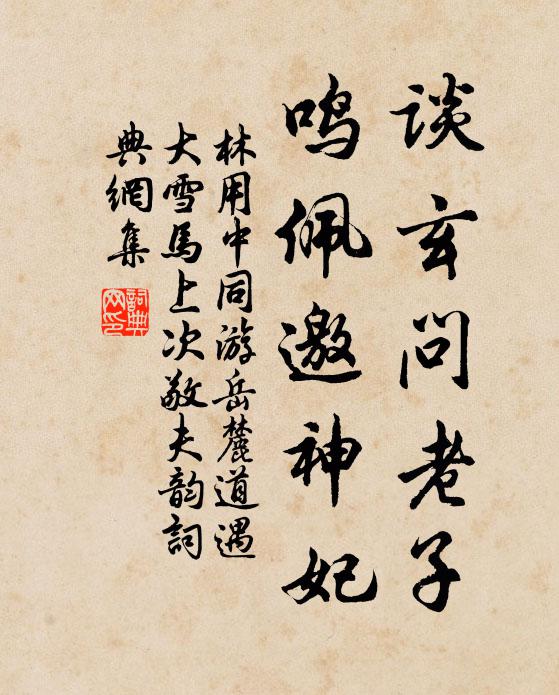 谈玄问老子
鸣佩邀神妃
林用中同游岳麓道遇
大雪馬上次敬夫韵詞
典網集
詞典
网印